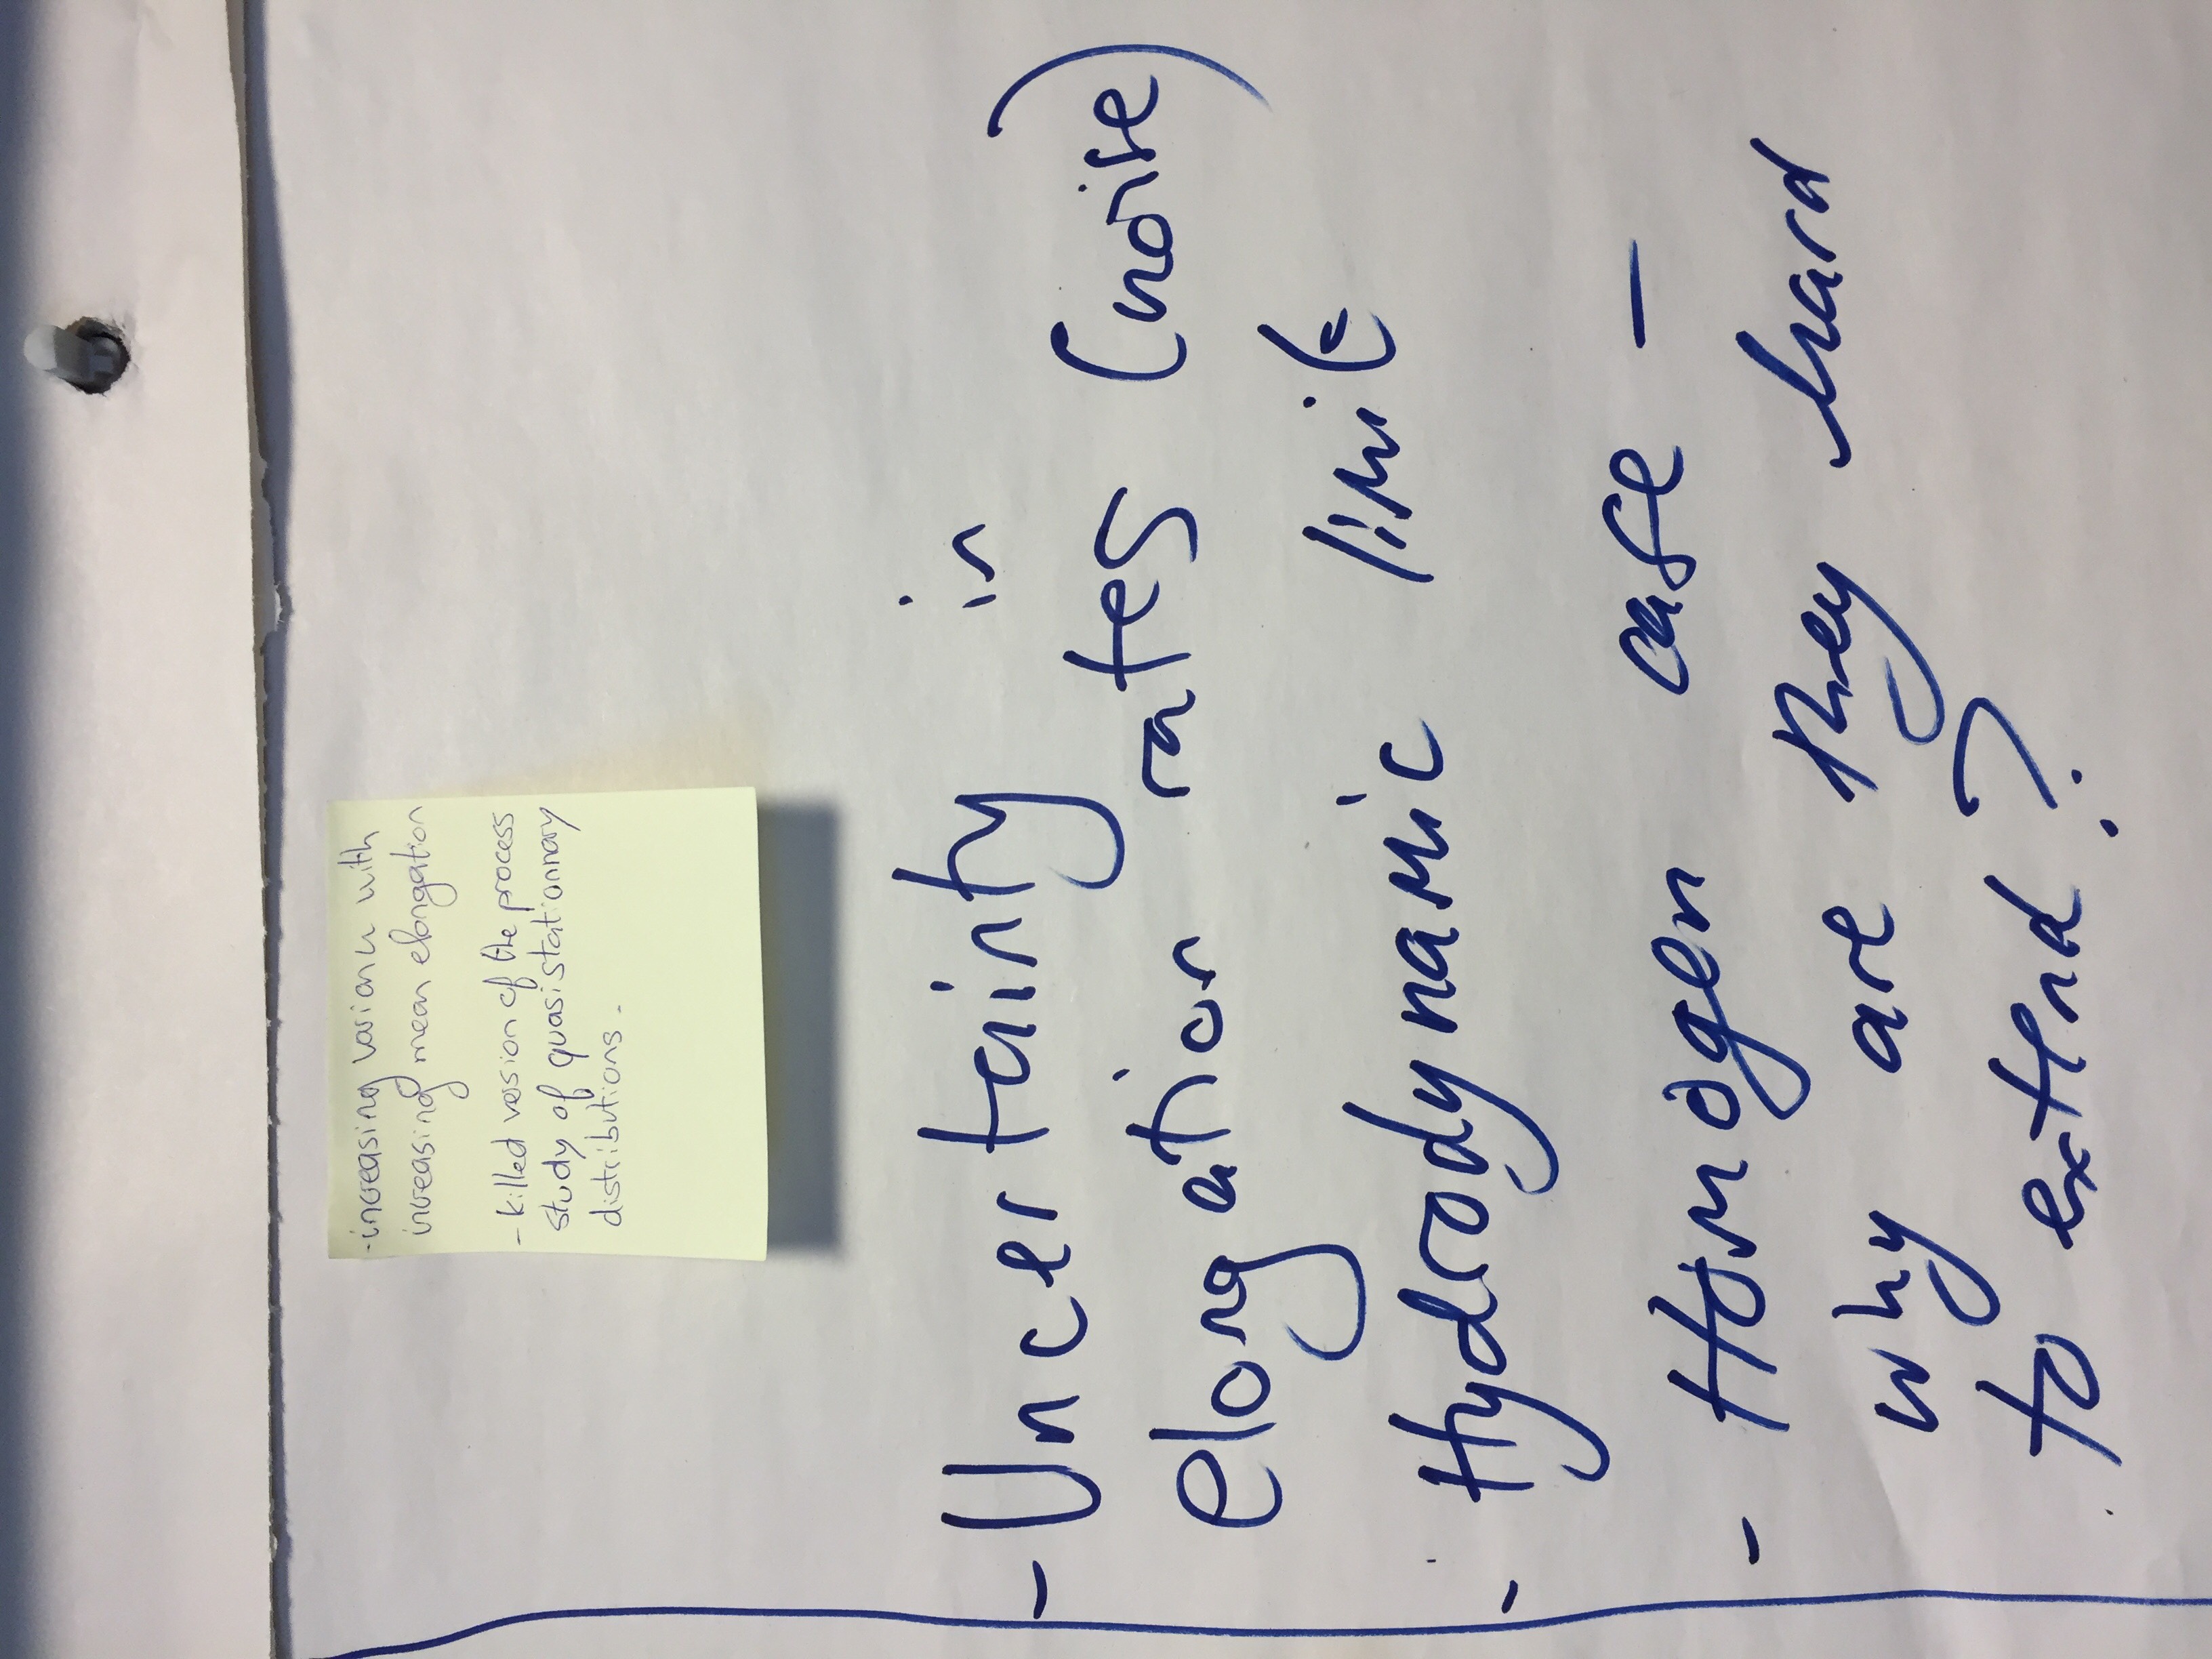 -increasing varianc with
increasing mean elongation
-killed version of the process
study of quasistationnary
distributions.
-Uncertainty in
elongation rates (noise)
- Hydrodynamic limit
- Homogen case -
why are they hard
to extend?